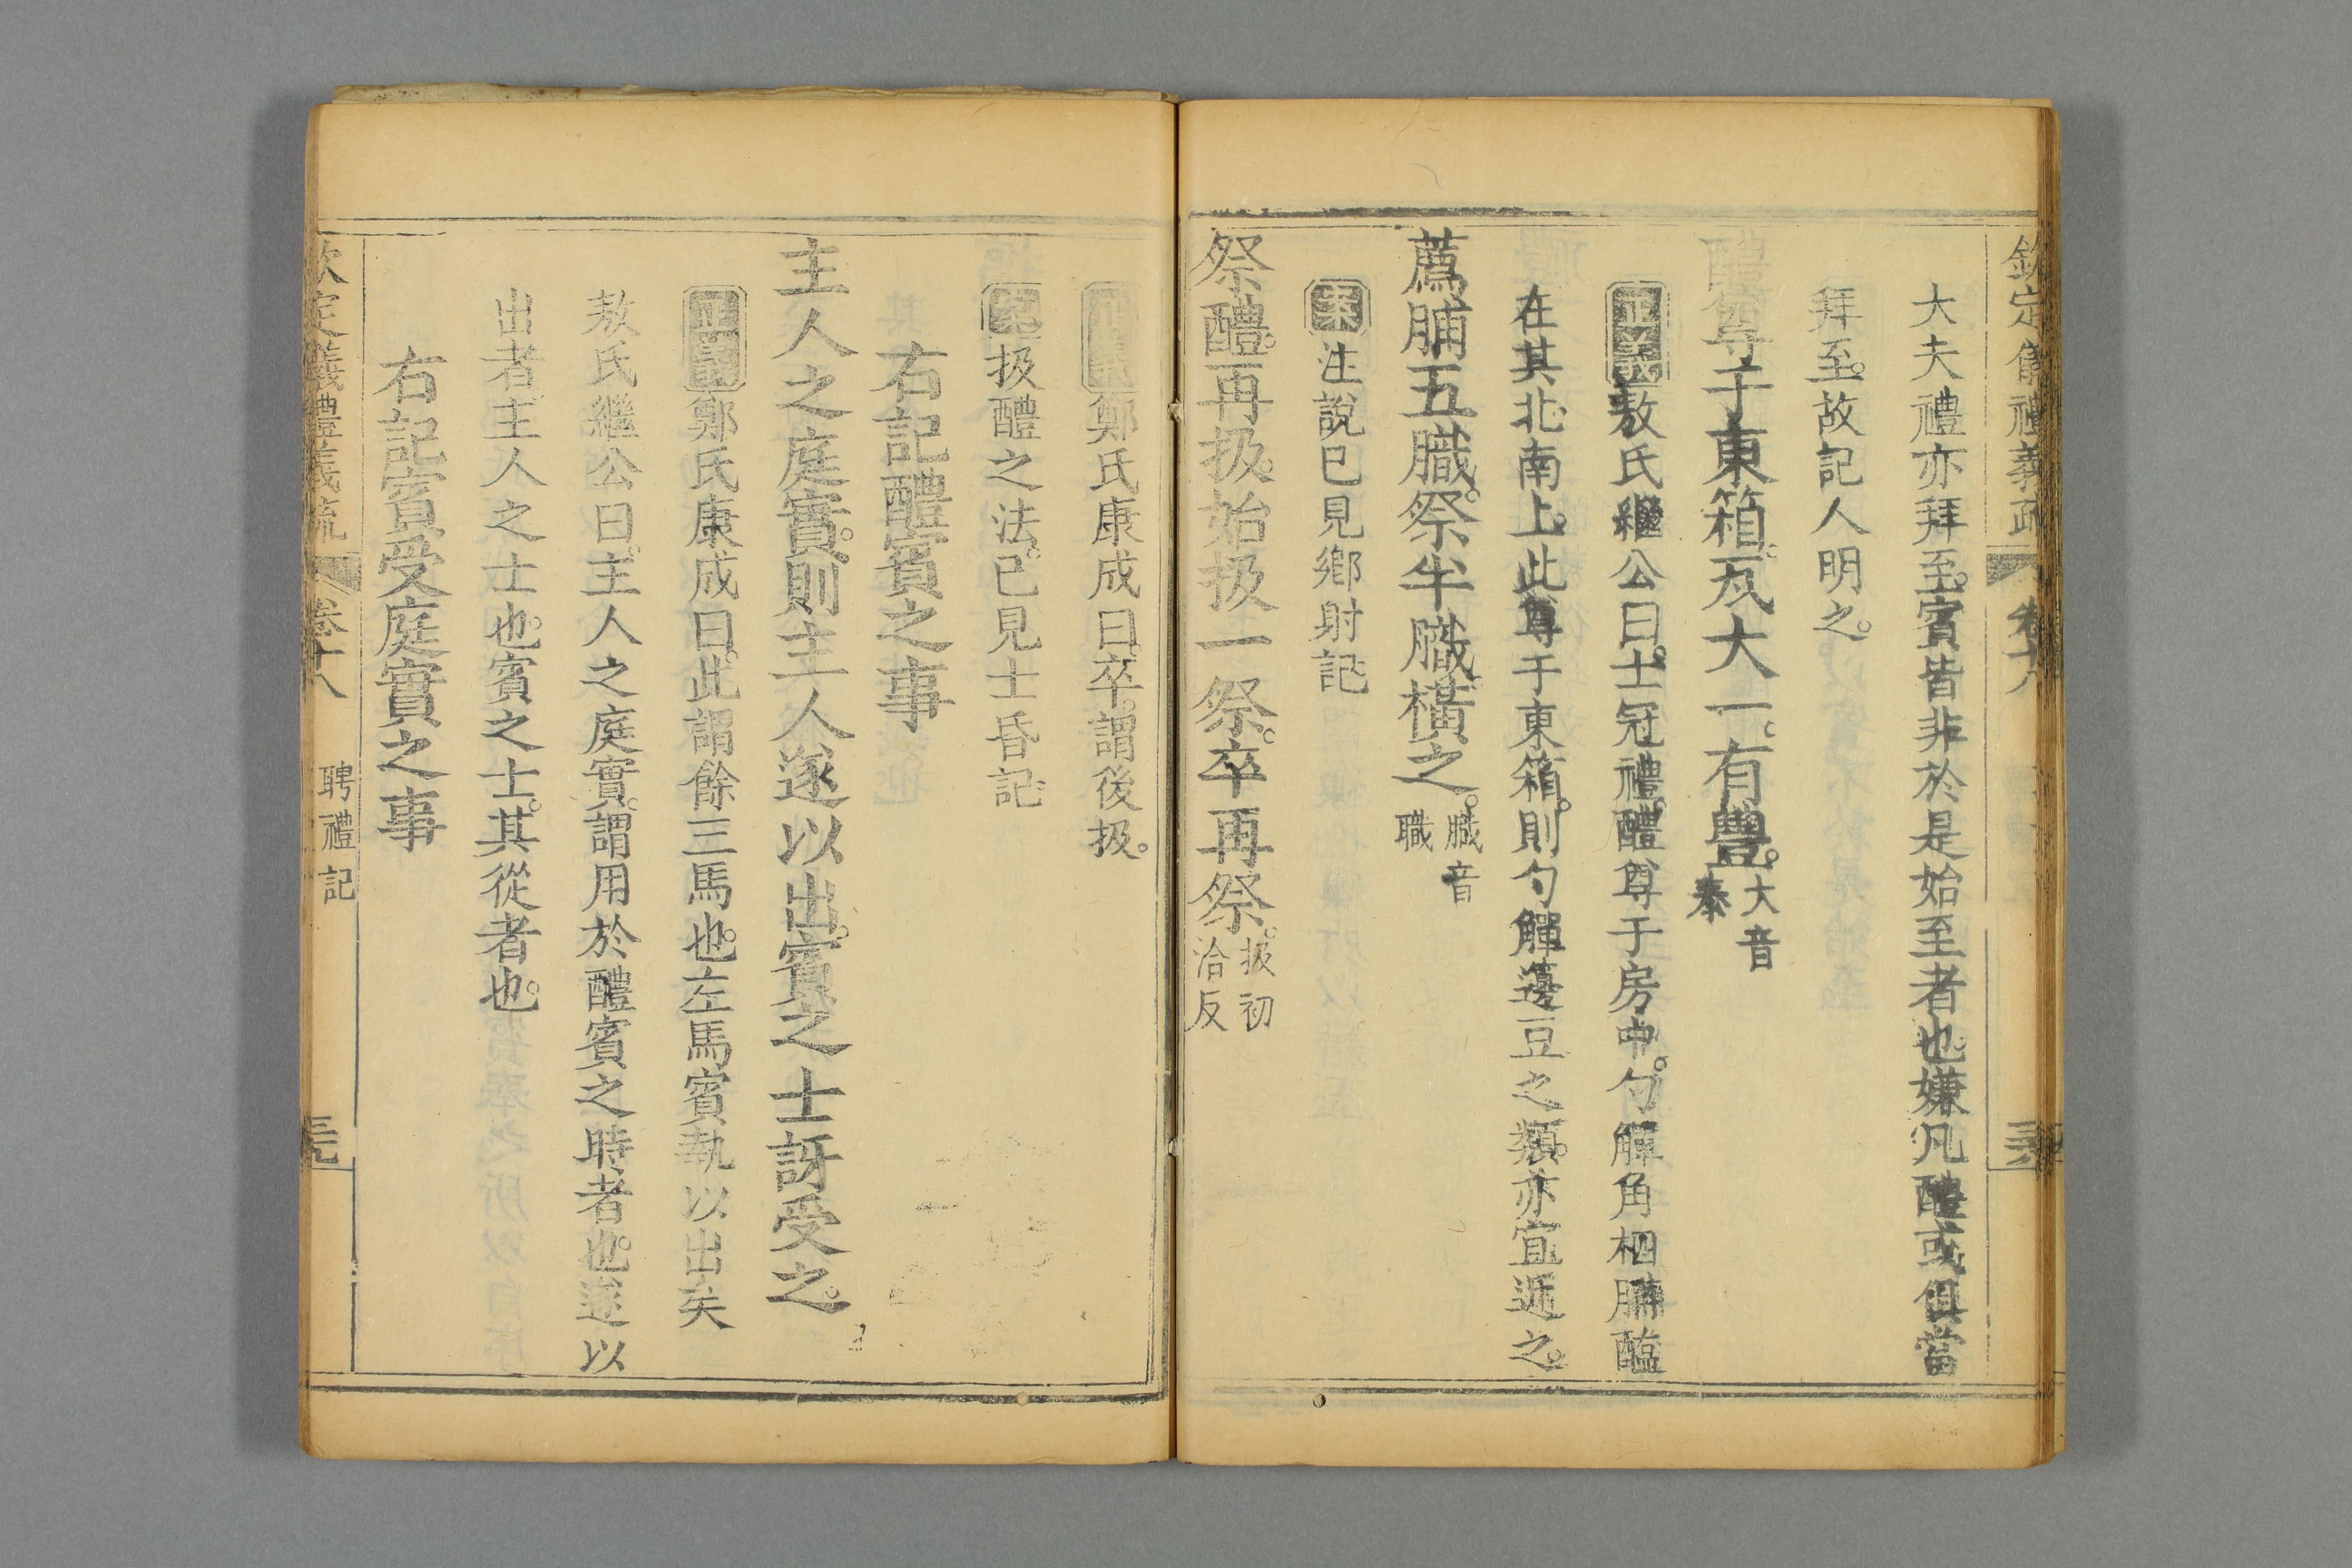 欽定儀禮義疏 卷十八
大夫禮亦拜至。賓皆非於是始至者也。嫌凡醴或俱當
拜至。故記人明之。
醴尊于東箱。瓦大一。有豐。大音泰
正義敖氏繼公曰。士冠禮。醴尊于房中。勺觶角柶脯醢
在其北。南上。此尊于東箱。則勺觶籩豆之類。亦宜近之。
薦脯五膱。祭半膱橫之。膱音職
案注說已見鄉射記
祭醴。再扱。始扱一祭。卒再祭。扱初洽反
正義鄭氏康成曰。卒。謂後扱。
案扱醴之法。已見士昏記
右記醴賓之事
主人之庭實。則主人遂以出。賓之士訝受之。
正義鄭氏康成曰。此謂餘三馬也。左馬賓執以出矣
敖氏繼公曰。主人之庭實。謂用於醴賓之時者也。遂以
出者主人之士也。賓之士。其從者也。
右記賓受庭實之事
欽定儀禮義疏 卷十八 聘禮記